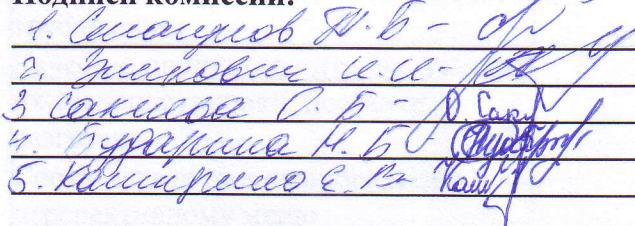 Подписи комиссии:
1. Смагулов Т. Б -
2. Зинкович И. И -
3 Сакиева О. Б - О. Саки
4. Бударина Н. Б -
5. Каширина Е. В - Каш